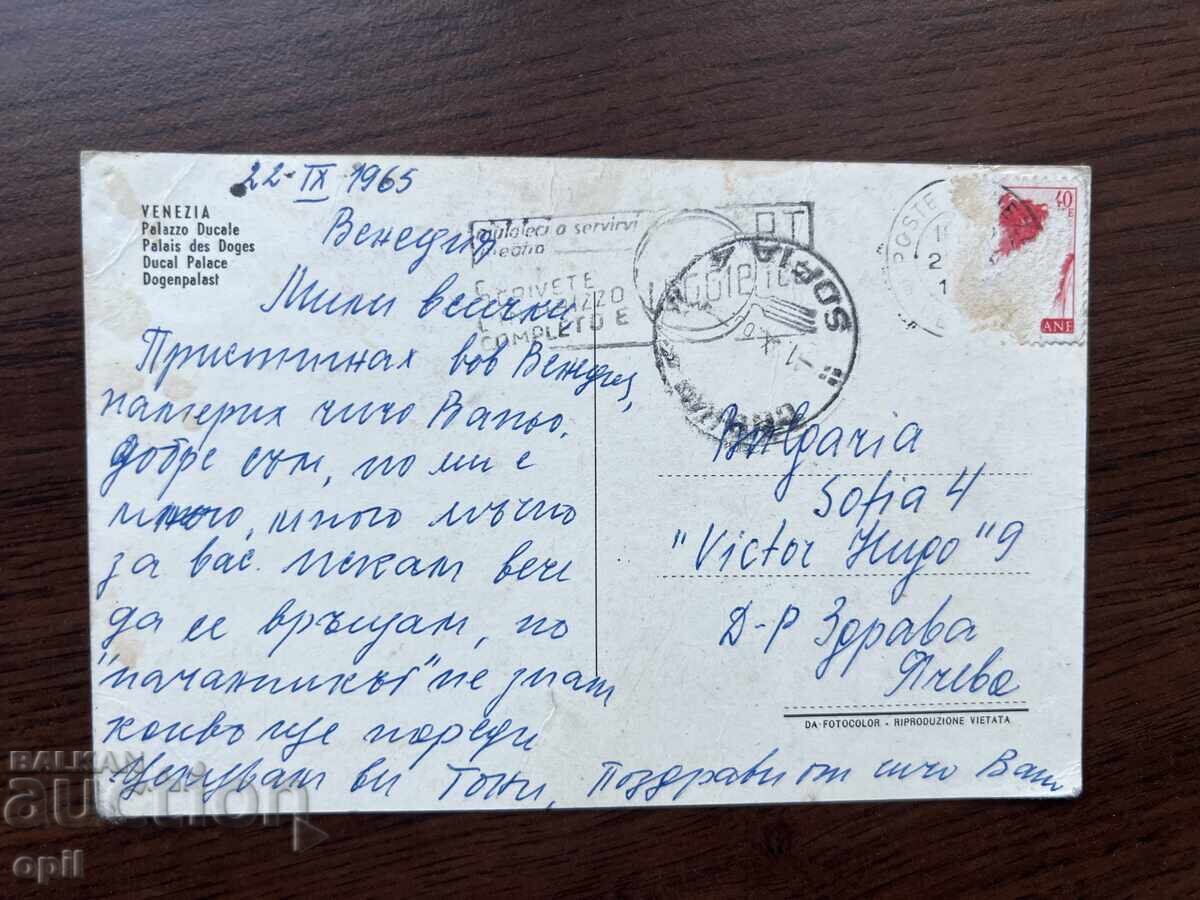 22-IX 1965
VENEZIA
Palazzo Ducale
Palais des Doges
Ducal Palace
Dogenpalast
Венеция
Мили всички
Пристигнах вов Венеция,
намерих чичо Ваньо.
Добре съм, но ми е
много, много мъчно
за вас. Искам вече
да се връщам, но
"началникът" не знам
какво ще нареди
Целувам ви Тони, Поздрави от чичо Ваньо
aiutateci a servirvi
meglio
COMPLETO E
SOFIA
POSTE
40
ANE
Bulgaria
Sofia 4
"Victor Hugo" 9
Д-р Здрава
Пчева
DA-FOTOCOLOR - RIPRODUZIONE VIETATA
BALKAN
auction
opil